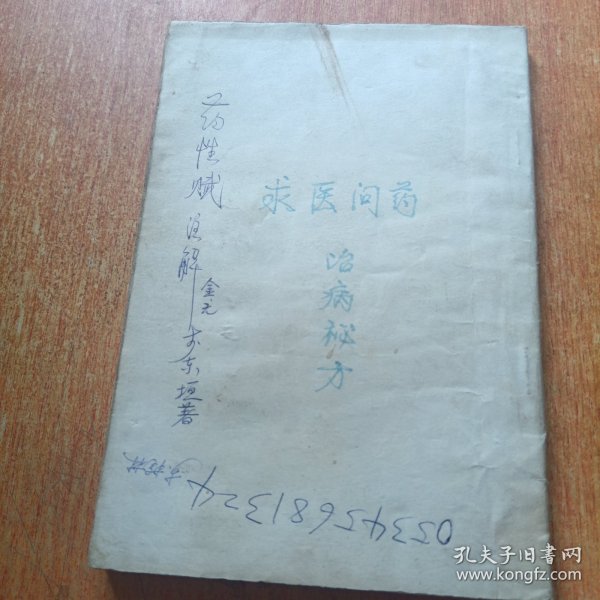 药性赋注解 金元 李东垣著
求医问药
治病秘方
05345681324
孔夫子旧书网
www.kongfz.com